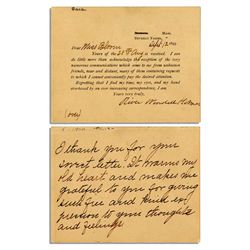 Mass.
Beverly Farms,
Sept 3, 18
Dear Miss Bloom
Yours of the 28th Aug is received. I can
do little more than acknowledge the reception of the very
numerous communications which come to me from unknown
friends, near and distant, many of them containing requests
to which I cannot conveniently pay the desired attention.
Regretting that I find my time, my eyes, and my hand
overtaxed by an ever increasing correspondence, I am,
Yours very truly,
Oliver Wendell Holmes
(over)
I thank you for your
sweet letter. It warms my
old heart and makes me
grateful to you for giving
such free and kind ex-
pression to your thoughts
and feelings